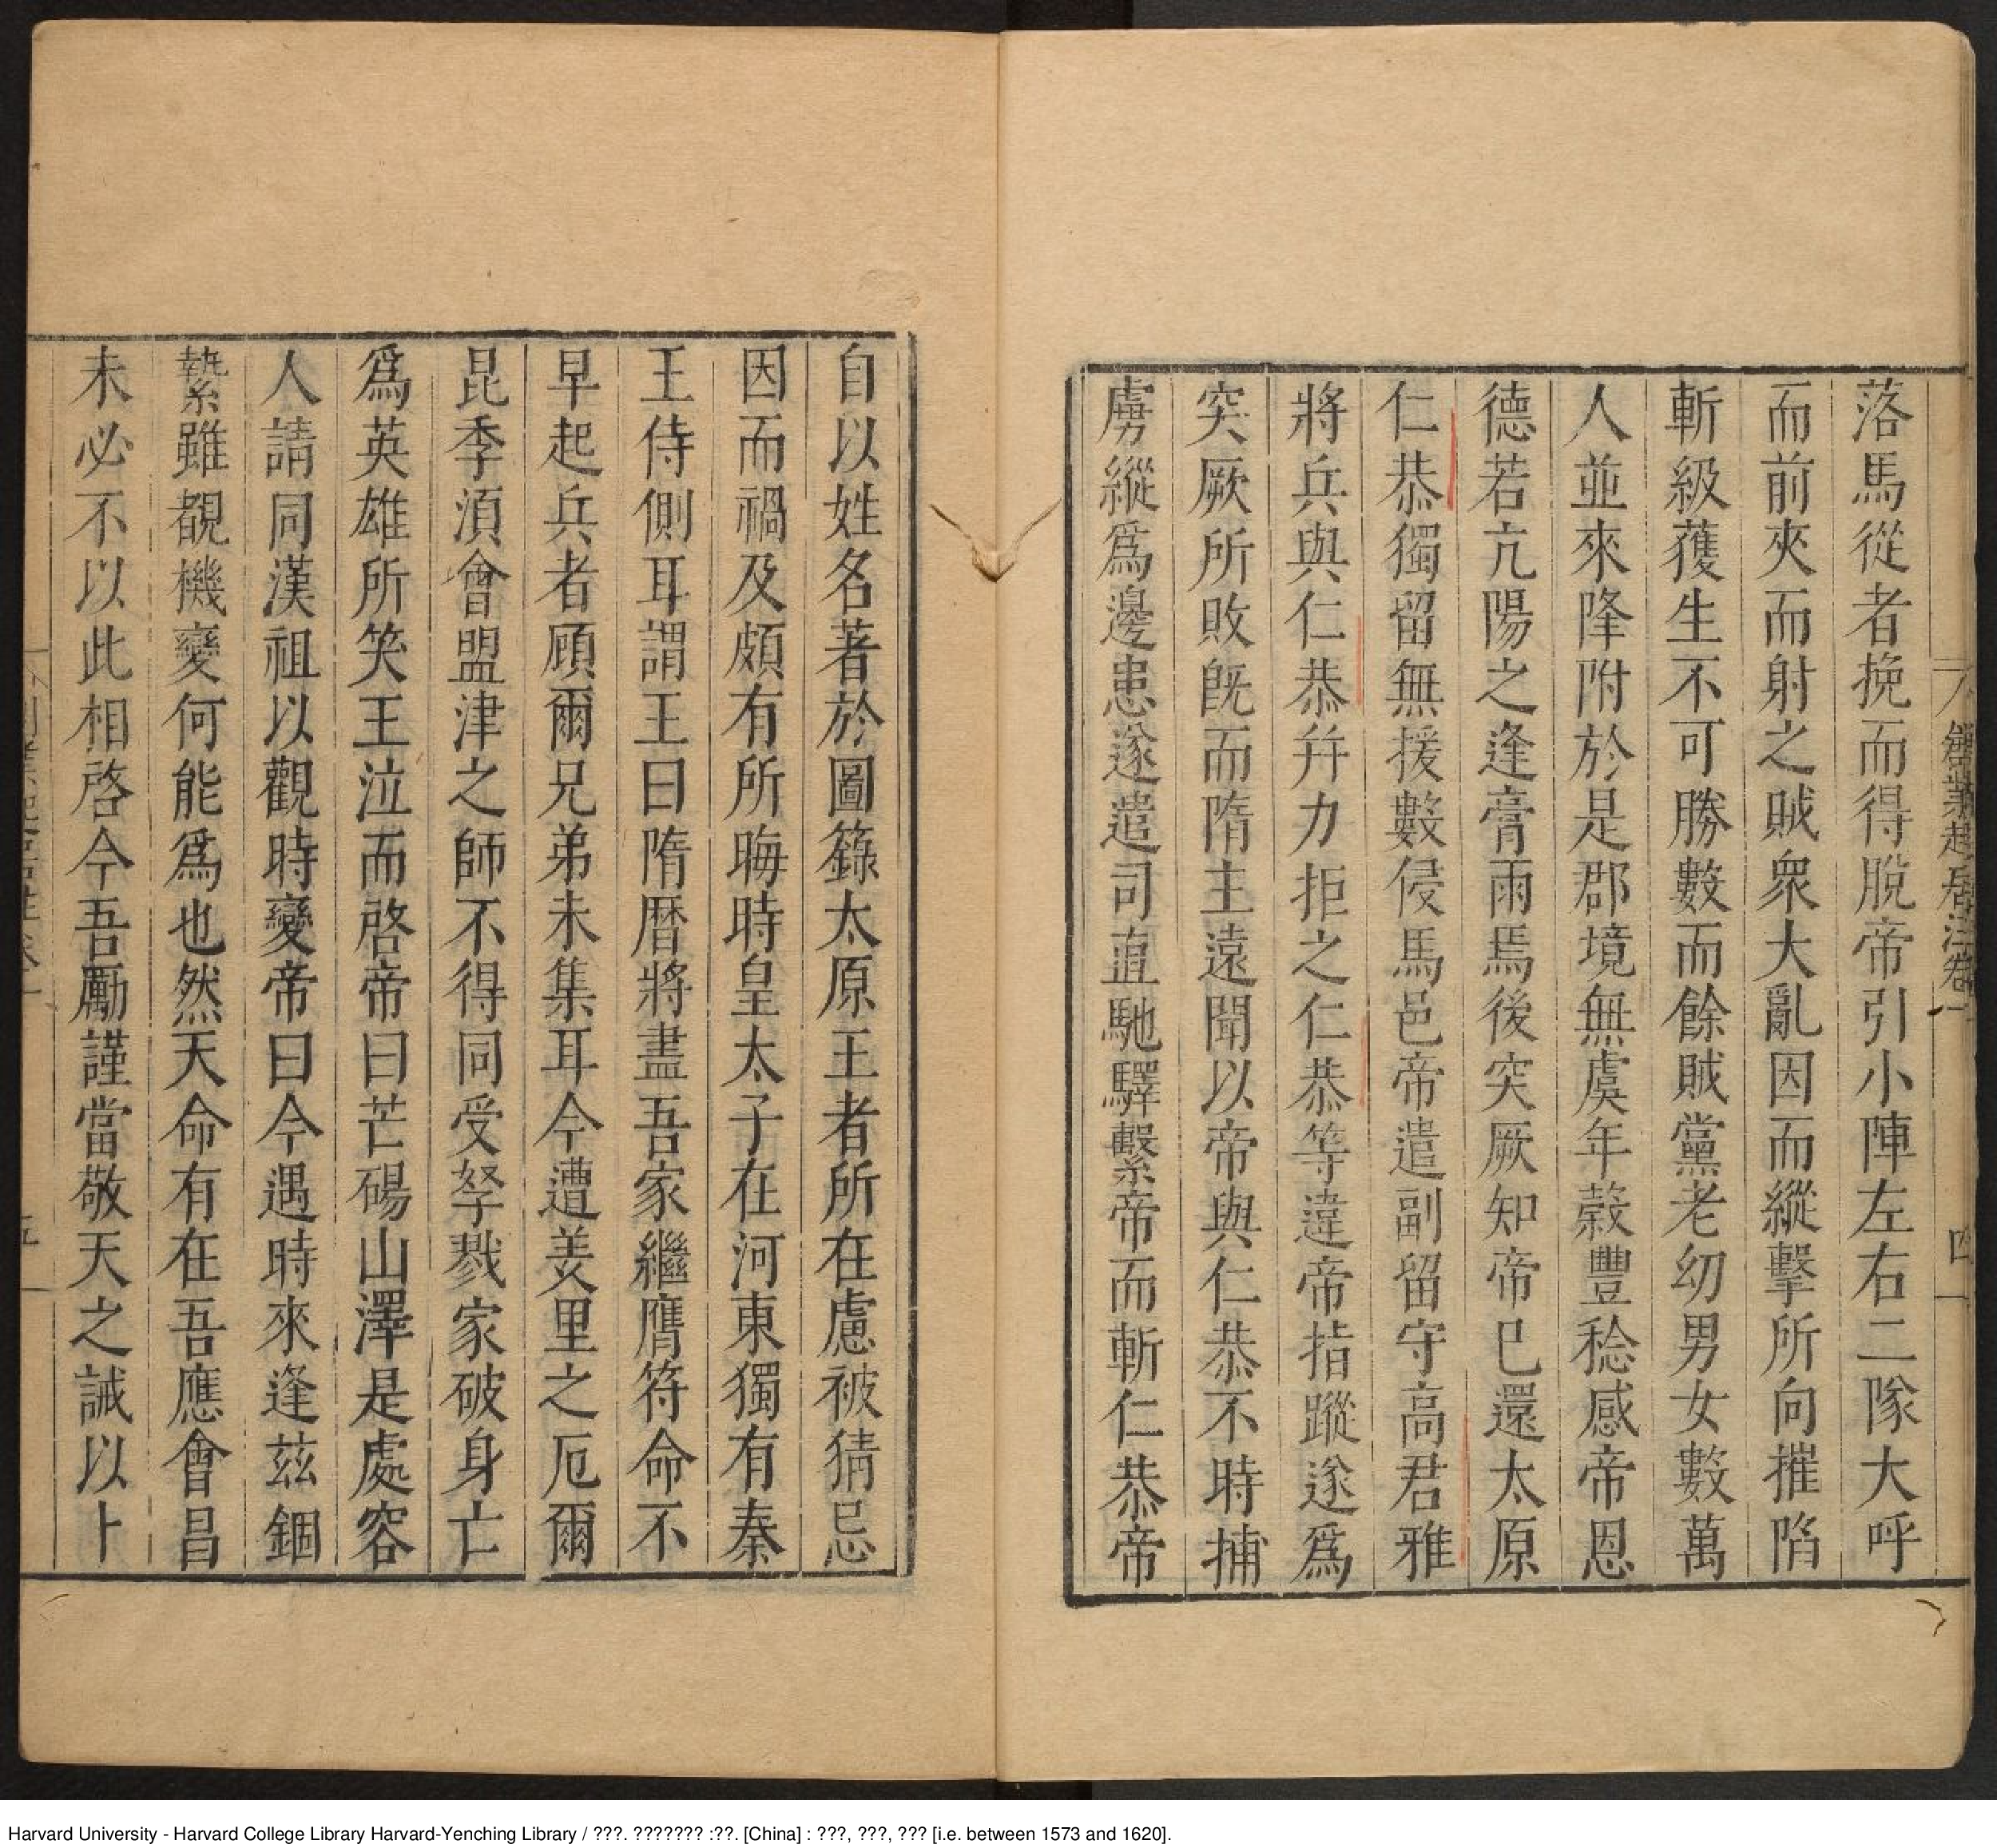 落馬從者挽而得脫帝引小陣左右二隊大呼
而前夾而射之賊衆大亂因而縱擊所向摧陷
斬級獲生不可勝數而餘賊黨老幼男女數萬
人並來降附於是郡境無虞年穀豐稔感帝恩
德若亢陽之逢膏雨焉後突厥知帝已還太原
仁恭獨留無援數侵馬邑帝遣副留守高君雅
將兵與仁恭幷力拒之仁恭等違帝指蹤遂爲
突厥所敗旣而隋主遠聞以帝與仁恭不時捕
虜縱爲邊患遂遣司直馳驛繫帝而斬仁恭帝
自以姓名著於圖籙太原王者所在慮被猜忌
因而禍及頗有所晦時皇太子在河東獨有秦
王侍側耳謂王曰隋曆將盡吾家繼膺符命不
早起兵者顧爾兄弟未集耳今遭羑里之厄爾
昆季須會盟津之師不得同受孥戮家破身亡
爲英雄所笑王泣而啓帝曰芒碭山澤是處容
人請同漢祖以觀時變帝曰今遇時來逢茲錮
縶雖覩機變何能爲也然天命有在吾應會昌
未必不以此相啓今吾勵謹當敬天之誡以卜
創業起居注卷一
四
五
Harvard University - Harvard College Library Harvard-Yenching Library / ???. ??????? :??. [China] : ???, ???, ??? [i.e. between 1573 and 1620].